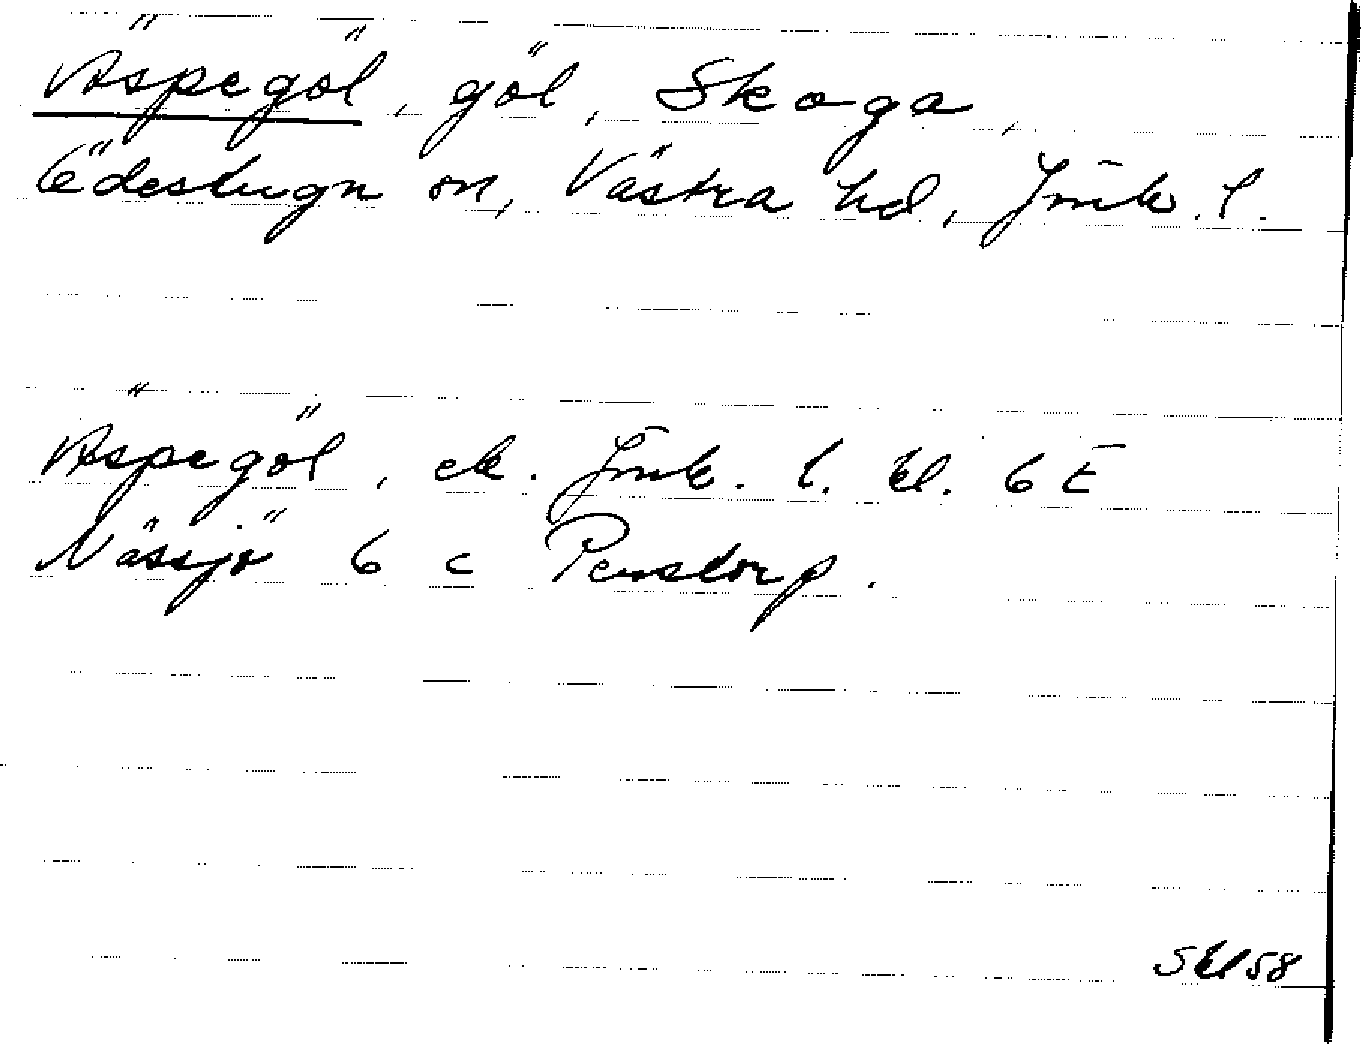 Äspegöl, göl, Skoga,
Ödestugu sn, Västra hd, Jönk. l.
Äspegöl, ek. Jönk. l. bl. 6E
Nässjö 6 c Penstorp.